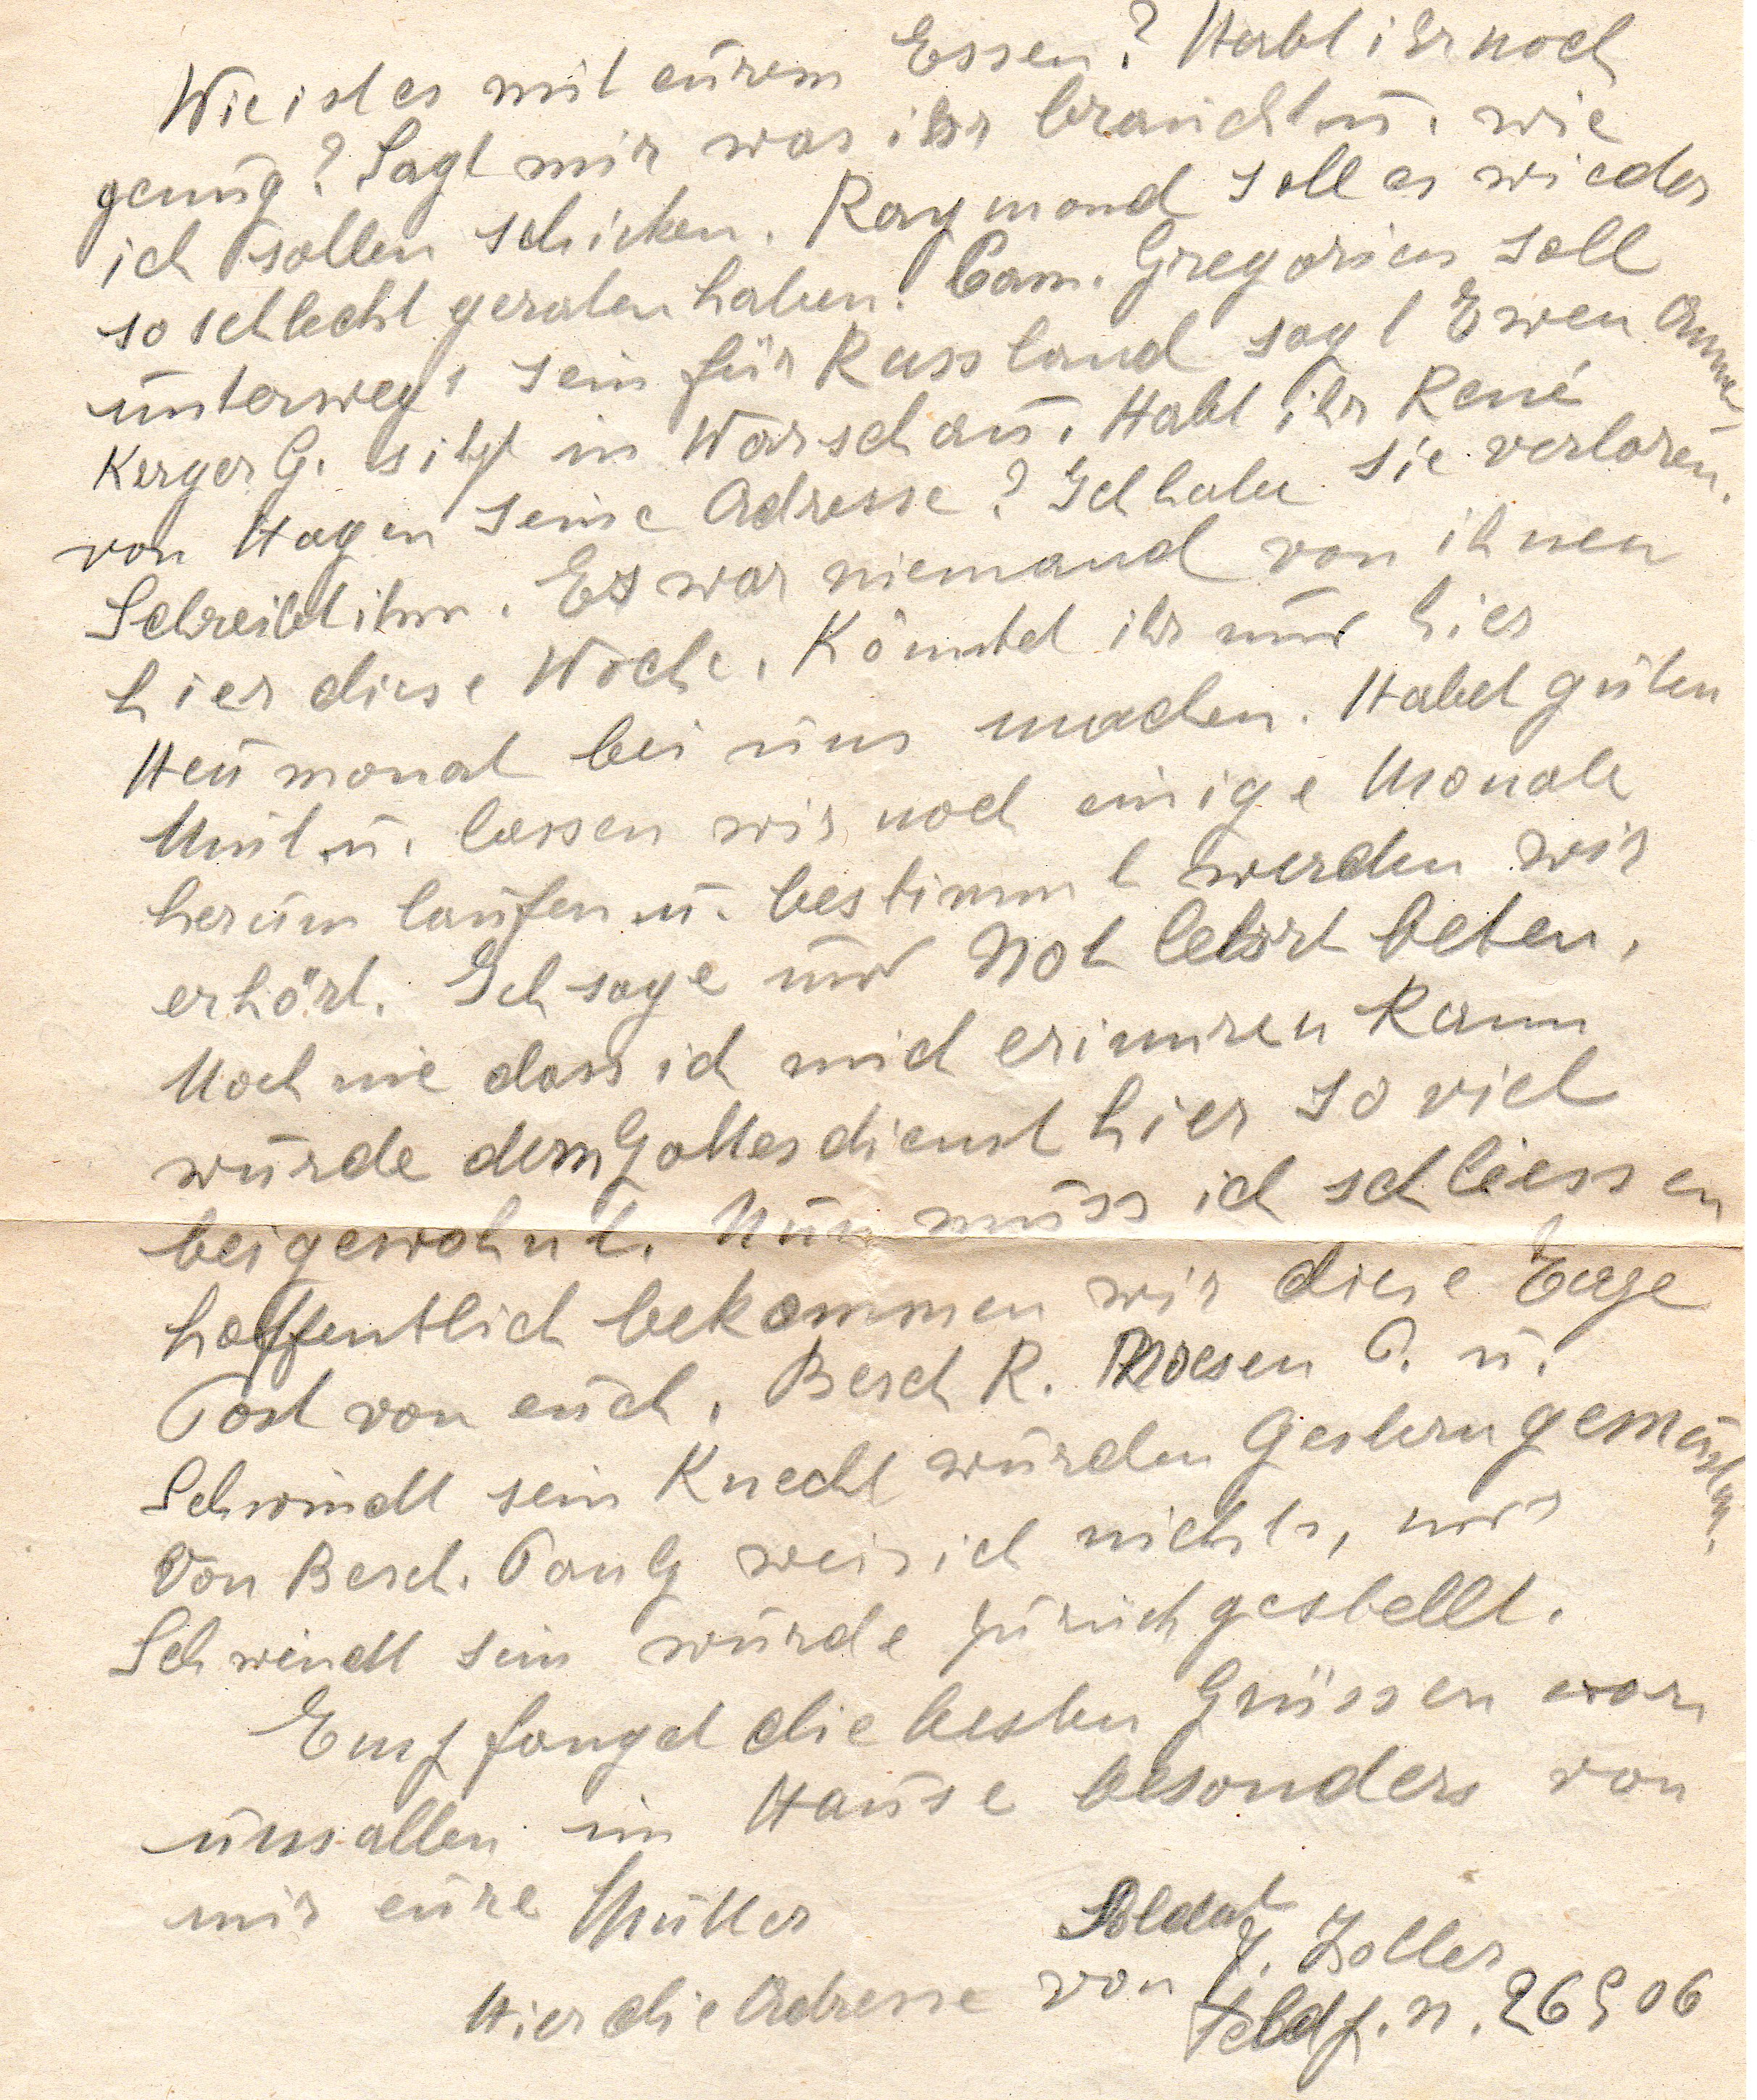 Wie ist es mit eurem Essen? Habt ihr noch
genug? Sagt mir was ihr braucht u. wie
ich sollen schicken. Raymond soll es wieder
so schlecht geraten haben. Cam. Gregorius soll
unterwegs sein für Russland sagt Ewen Anna
Kerger G. sitzt in Warschau. Habt ihr René
von Hagen seine Adresse? Ich habe sie verloren.
Schreibt ihm. Es war niemand von ihnen
hier diese Woche. Könntet ihr nur hier
Heumonat bei uns machen. Habet guten
Mut u. lassen wir noch einige Monate
herum laufen u. bestimmt werden wir
erhört. Ich sage nur Not lehrt beten.
Noch nie dass ich mich erinnren kann
wurde dem Gottesdienst hier so viel
beigewohnt. Nun muss ich schliessen
hoffentlich bekommen wir diese Tage
Post von euch. Besch R. Thoesen P. u.
Schwindt sein Knecht wurden Gestern gemustert.
Von Besch. Paul weis ich nichts, nur
Schwindt sein wurde zurückgestellt.
Empfanget die besten Grüssen von
uns allen im Hause besonders von
mir eure Mutter
Soldat
Hier die Adresse von J. Zoller
Feldp. n. 26906